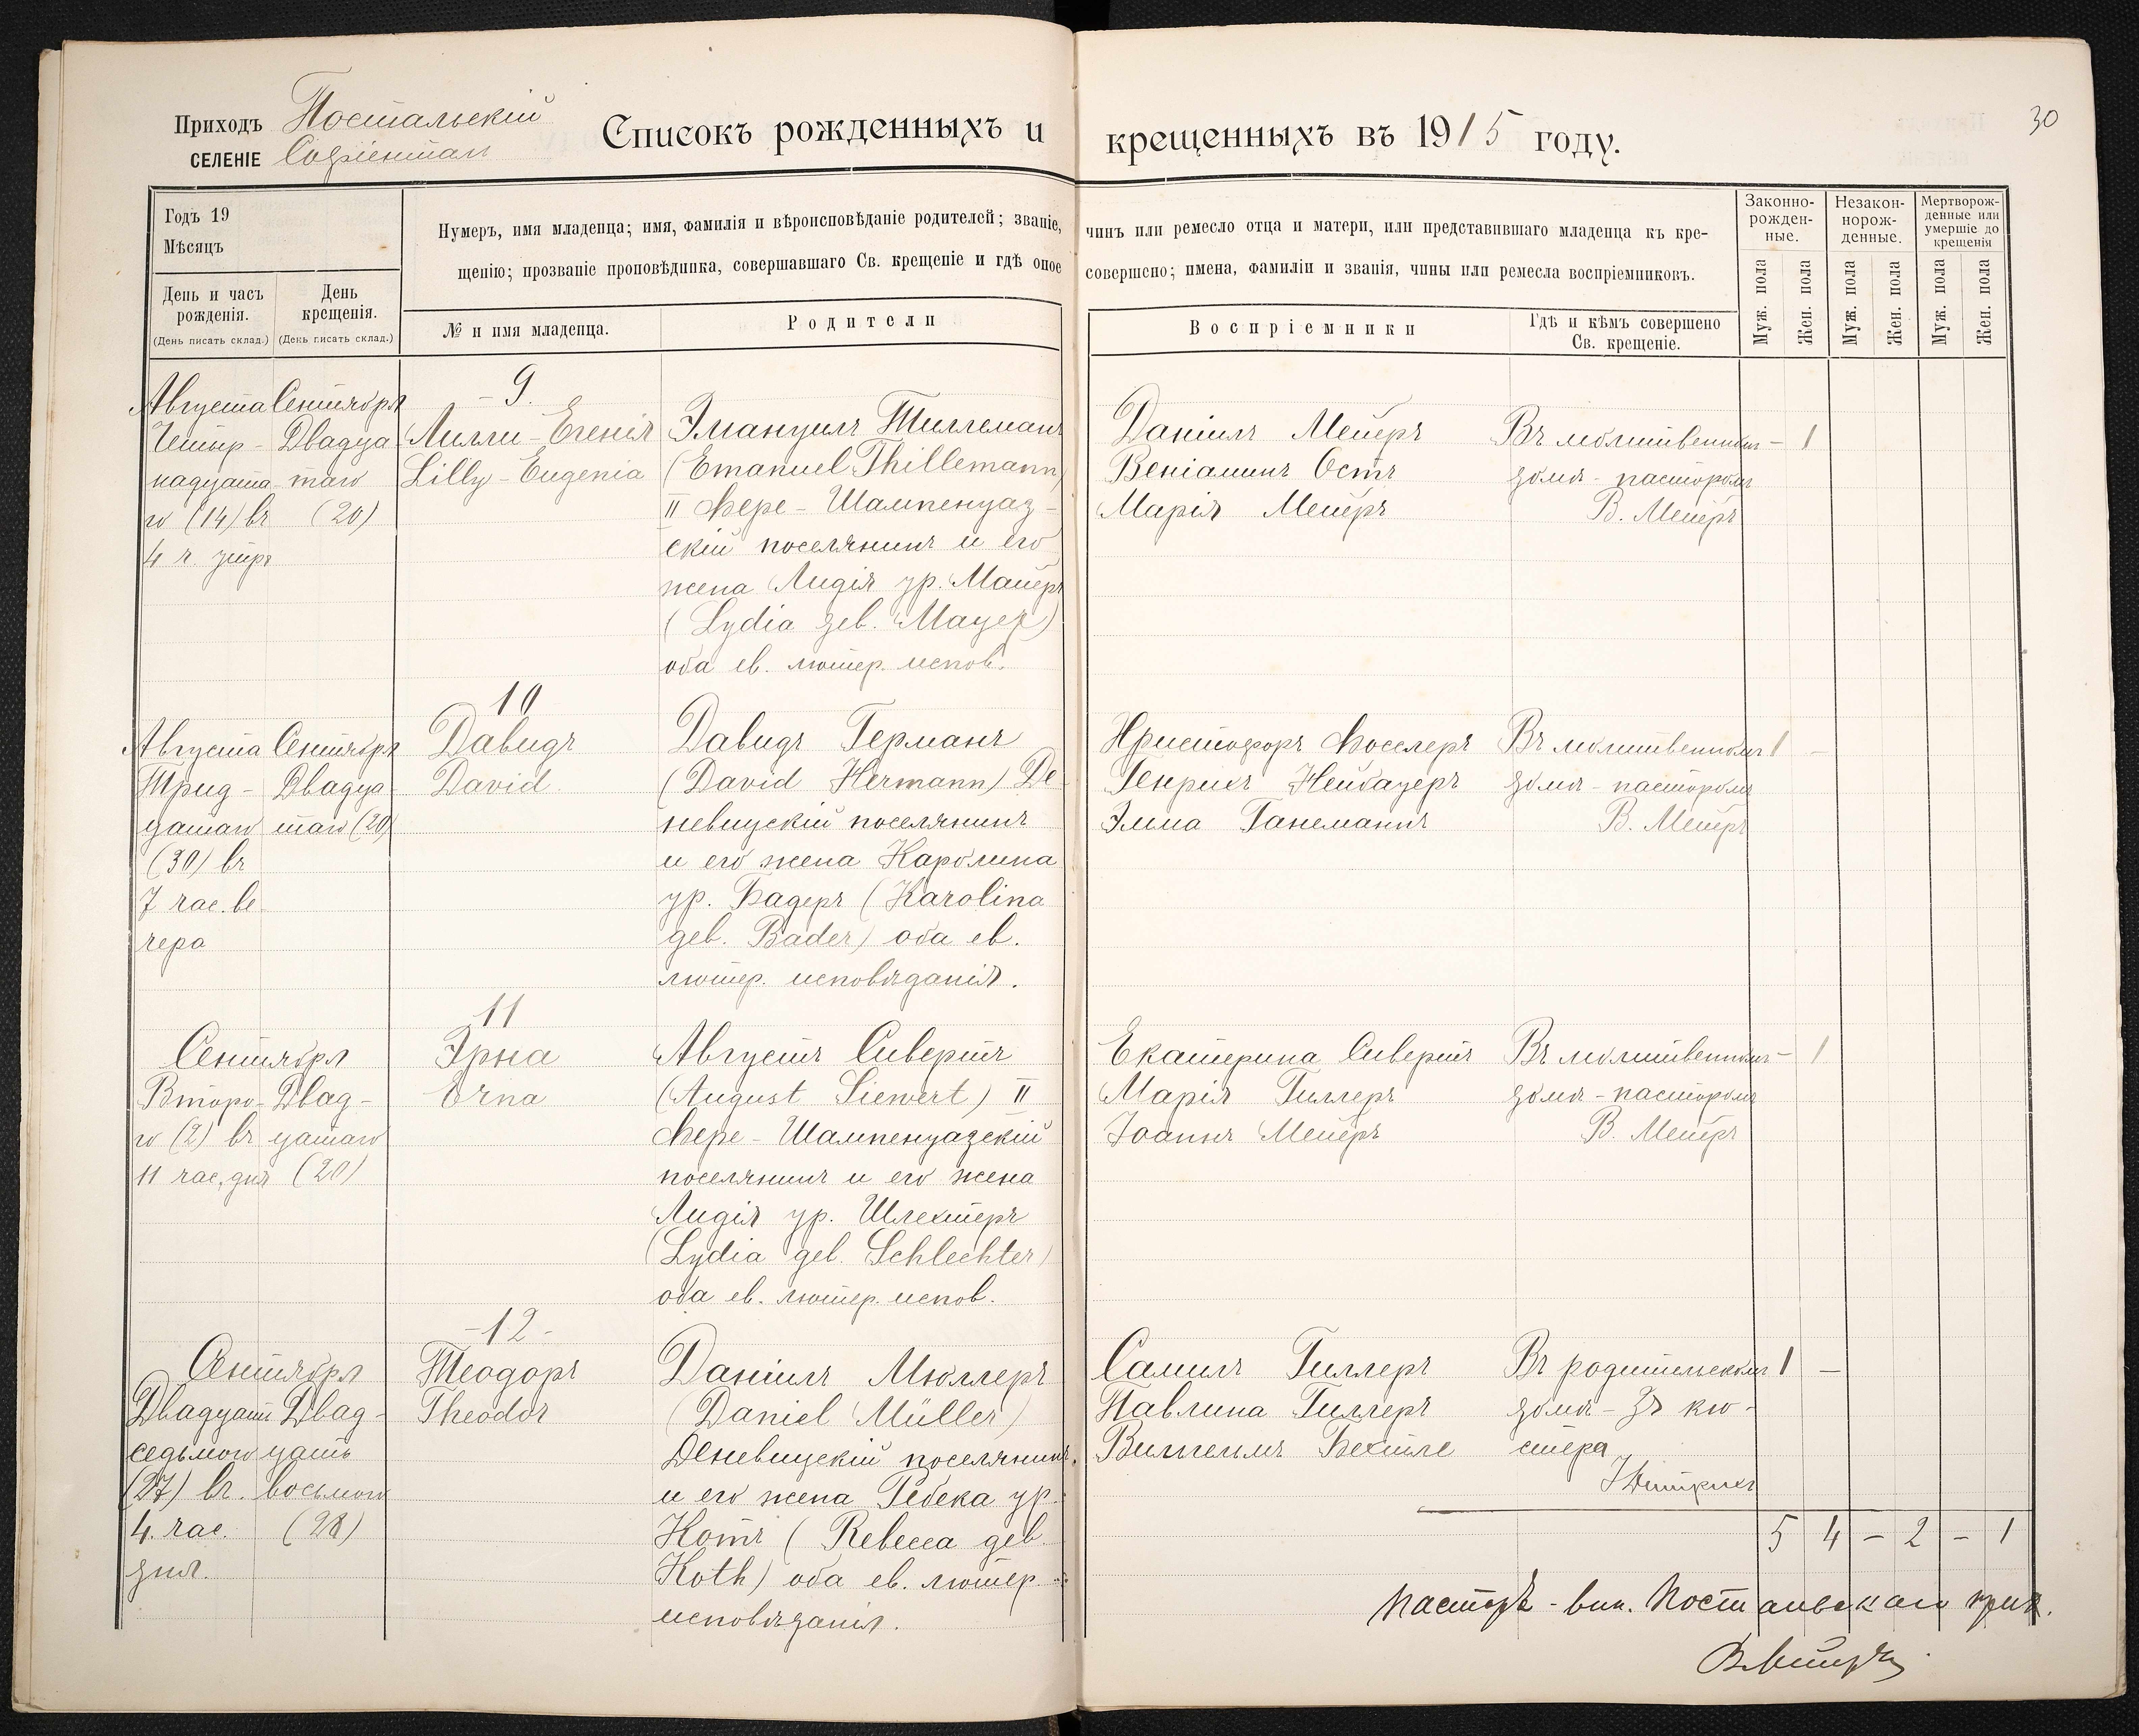 30
Приходъ Постальскій
СЕЛЕНІЕ Софіенталь
Списокъ рожденныхъ и крещенныхъ въ 1915 году.
Годъ 19
Мѣсяцъ
День и часъ рожденія.
(День писать склад.)
День крещенія.
(День писать склад.)
Нумеръ, имя младенца; имя, фамилія и вѣроисповѣданіе родителей; званіе, чинъ или ремесло отца и матери, или представившаго младенца къ кре-
щенію; прозваніе проповѣдника, совершавшаго Св. крещеніе и гдѣ оное совершено; имена, фамиліи и званія, чины или ремесла воспріемниковъ.
№ и имя младенца.
Родители
Воспріемники
Гдѣ и кѣмъ совершено
Св. крещеніе.
Законно-
рожден-
ные.
Незакон-
норож-
денные.
Мертворож-
денные или
умершіе до
крещенія
Муж. пола
Жен. пола
Муж. пола
Жен. пола
Муж. пола
Жен. пола
Августа
Четыр-
надцата-
го (14) въ
4 ч. утра
Сентября
Двадца-
таго
(20)
- 9.
Лилли-Егенія
Lilly-Eugenia
Эмануилъ Тиллеманъ
(Emanuel Thillemann)
II Фере-Шампенуаз-
скій поселянинъ и его
жена Лидія ур. Майеръ
(Lydia geb. Mayer)
оба ев. лютер. испов.
Даніилъ Мейеръ
Веніаминъ Остъ
Марія Мейеръ
Въ молитвенномъ
домѣ - пасторомъ
В. Мейеръ
- 1
Августа
Трид-
цатаго
(30) въ
7 час. ве-
чера
Сентября
Двадца-
таго (20)
10
Давидъ
David
Давидъ Германъ
(David Hermann) Де-
невицскій поселянинъ
и его жена Каролина
ур. Бадеръ (Karolina
geb. Bader) оба ев.
лютер. исповѣданія.
Христофоръ Фосслеръ
Генрихъ Нейбауеръ
Эмма Ганеманнъ
Въ молитвенномъ
домѣ - пасторомъ
В. Мейеръ
1 -
Сентября
Второ-
го (2) въ
11 час. дня
Двад-
цатаго
(20)
11
Эрна
Erna
Августъ Сивертъ
(August Siewert) II
Фере-Шампенуазскій
поселянинъ и его жена
Лидія ур. Шлехтеръ
(Lydia geb. Schlechter)
оба ев. лютер. испов.
Екатерина Сивертъ
Марія Гиллеръ
Іоаннъ Мейеръ
Въ молитвенномъ
домѣ - пасторомъ
В. Мейеръ
- 1
Сентября
Двадцать
седьмого
(27) въ
4. час.
дня.
Двад-
цать
восьмого
(28)
-12-
Теодоръ
Theodor
Даніилъ Мюллеръ
(Daniel Müller)
Деневицскій поселянинъ
и его жена Ребека ур.
Котъ (Rebecca geb.
Koth) оба ев. лютер.
исповѣданія.
Самилъ Гиллеръ
Павлина Гиллеръ
Вильгельмъ Бехтле
Въ родительскомъ
домѣ - за кю-
стера
1 -
5 4 - 2 - 1
Пасторъ-вик. Постальскаго прих.
В. Мейеръ